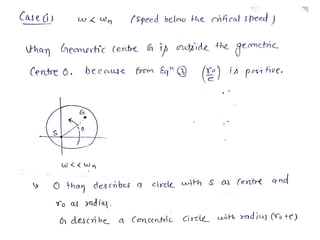 Case(i) ω < ωn (Speed below the critical speed)
than Geometric Centre G is outside the geometric
Centre O. because from Eqn ③ (r₀/e) is positive.
G
O
S
ω << ωn
↳ O then describes a circle with S as centre and
r₀ as radius.
G describe a Concentric Circle with radius (r₀+e)